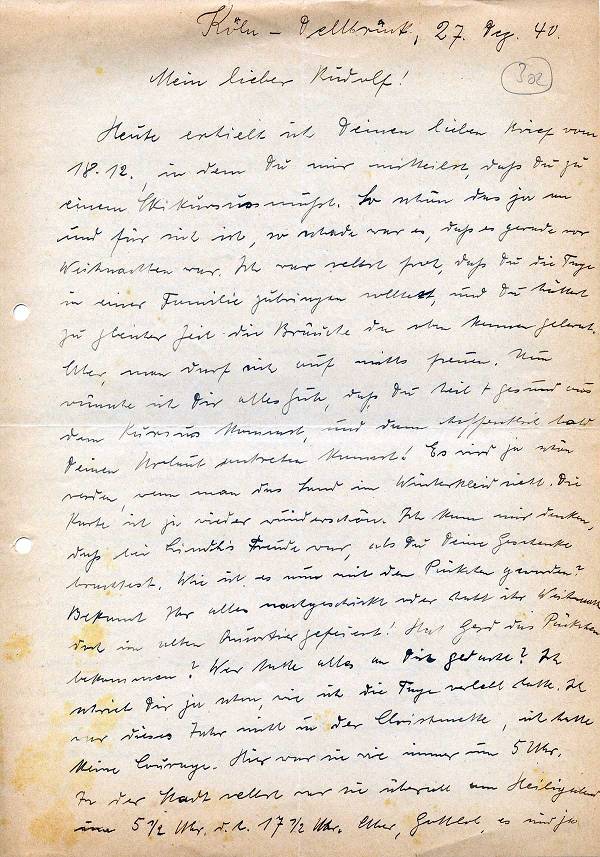 Köln - Dellbrück, 27. Dez. 40.
Mein lieber Rudolf!
302
Heute erhielt ich Deinen lieben Brief vom
18.12., in dem Du mir mitteilst, daß Du zu
einem Skikursus mußt. So schön das ja an
und für sich ist, so schade war es, daß es gerade vor
Weihnachten war. Ich war selbst froh, daß Du die Tage
in einer Familie zubringen solltest, und Du hättest
zu gleicher Zeit die Bräuche da oben kennen gelernt.
Aber, man darf sich auf nichts freuen. Nun
wünsche ich Dir alles Gute, daß Du heil + gesund aus
dem Kursus kommst, und dann hoffentlich bald
Deinen Urlaub antreten kannst! Es wird ja schön
werden, wenn man das Land im Winterkleid sieht. Die
Karte ist ja wieder wunderschön. Ich kann mir denken,
daß bei Freude war, als Du Deine Geschenke
brachtest. Wie ist es nun mit den Päckchen geworden?
Bekamt Ihr alles nachgeschickt oder habt ihr Weihnacht
dort im alten Quartier gefeiert! Hat Gerd das Päckchen
bekommen? Wer hatte alles an Dich gedacht? Ich
schrieb Dir ja schon, wie ich die Tage verlebt hatte. Ich
war dieses Jahr nicht in der Christmette, ich hatte
keine Courage. Hier war sie wie immer um 5 Uhr.
In der Stadt selbst war sie überall am Heiligabend
um 5 1/2 Uhr d.h. 17 1/2 Uhr. Aber, Gottlob, es sind ja